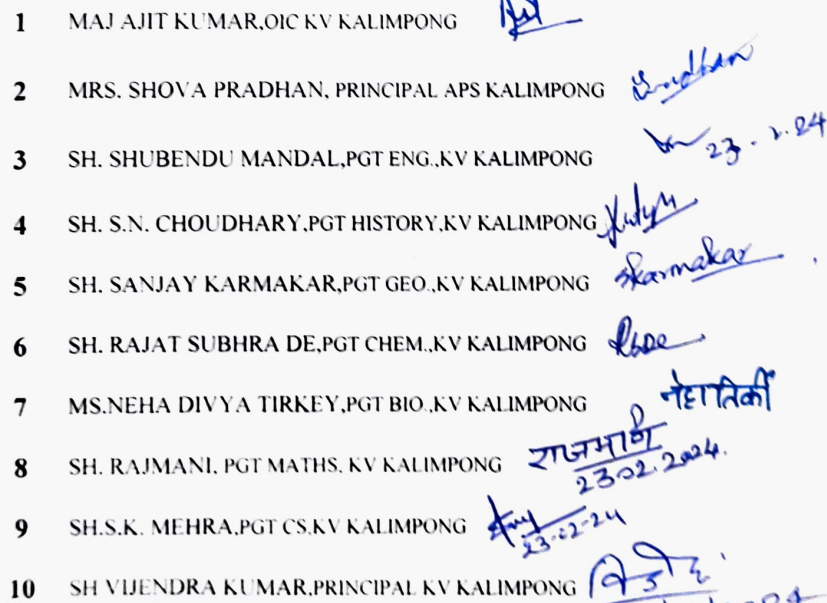 1 MAJ AJIT KUMAR,OIC KV KALIMPONG
2 MRS. SHOVA PRADHAN, PRINCIPAL APS KALIMPONG
3 SH. SHUBENDU MANDAL,PGT ENG.,KV KALIMPONG 23.2.24
4 SH. S.N. CHOUDHARY,PGT HISTORY,KV KALIMPONG
5 SH. SANJAY KARMAKAR,PGT GEO.,KV KALIMPONG Skarmakar
6 SH. RAJAT SUBHRA DE,PGT CHEM.,KV KALIMPONG
7 MS.NEHA DIVYA TIRKEY,PGT BIO.,KV KALIMPONG नेहा तिर्की
8 SH. RAJMANI, PGT MATHS, KV KALIMPONG राजमणि
23.02.2024.
9 SH.S.K. MEHRA,PGT CS,KV KALIMPONG
23-02-24
10 SH VIJENDRA KUMAR,PRINCIPAL KV KALIMPONG